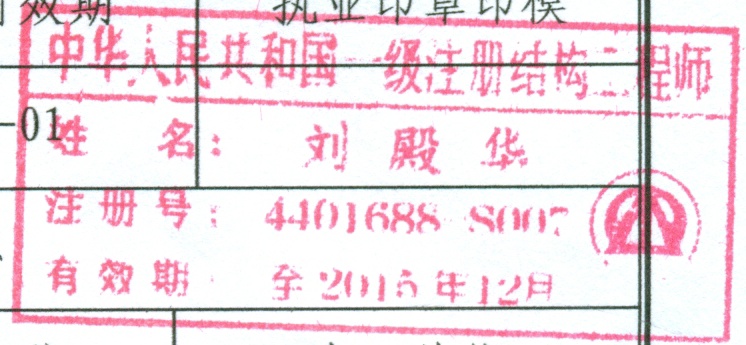 有效期 执业印章印模
中华人民共和国一级注册结构工程师
-01
姓 名: 刘殿华
注册号: 4401688-S007
有效期: 至2015年12月